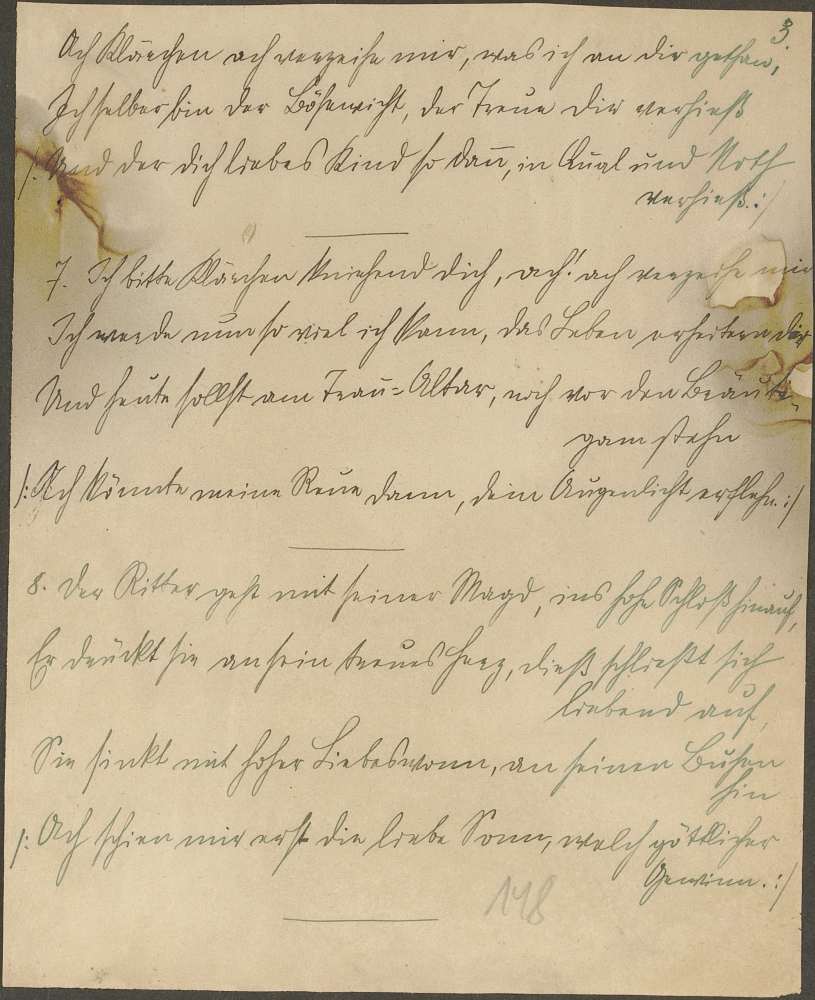 3.
Ach Klärchen ach verzeihe mir, was ich an dir gethan,
Ich selber bin der Bösewicht, der Treue dir verhieß
/: Und der dich liebes Kind so dan̄, in Qual und Noth
verließ. :/
7. Ich bitte Klärchen kniehend dich, ach! ach verzeihe mir
Ich werde nun so viel ich kann, das Leben erheitern dir
Und heute sollst am Trau-Altar, noch vor den Bräuti-
gam stehn
/: Ach könnte meine Reue dann, dein Augenlicht erflehn. :/
8. Der Ritter geht mit seiner Magd, ins hohe Schloß hinauf,
Er drückt sie an sein treues Herz, dieß schließt sich
liebend auf,
Sie sinkt mit hoher Liebeswonn, an seinen Busen
hin
/: Ach schien mir erst die liebe Sonn, welch göttlicher
Gewinn. :/
148